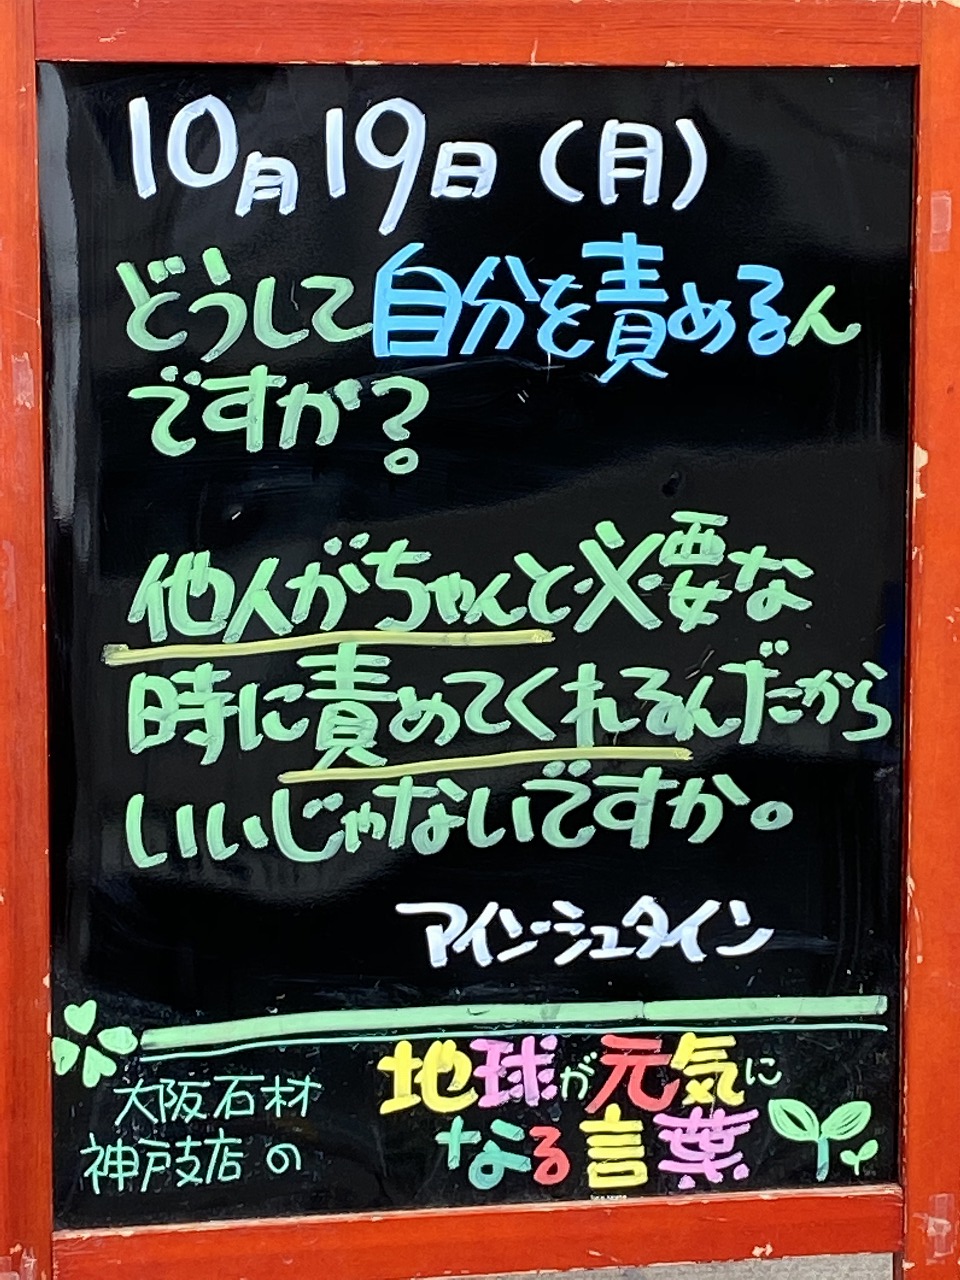 10月19日(月)
どうして自分を責めるん
ですか?
他人がちゃんと必要な
時に責めてくれるんだから
いいじゃないですか。
アインシュタイン
大阪石材
神戸支店の
地球が元気に
なる言葉